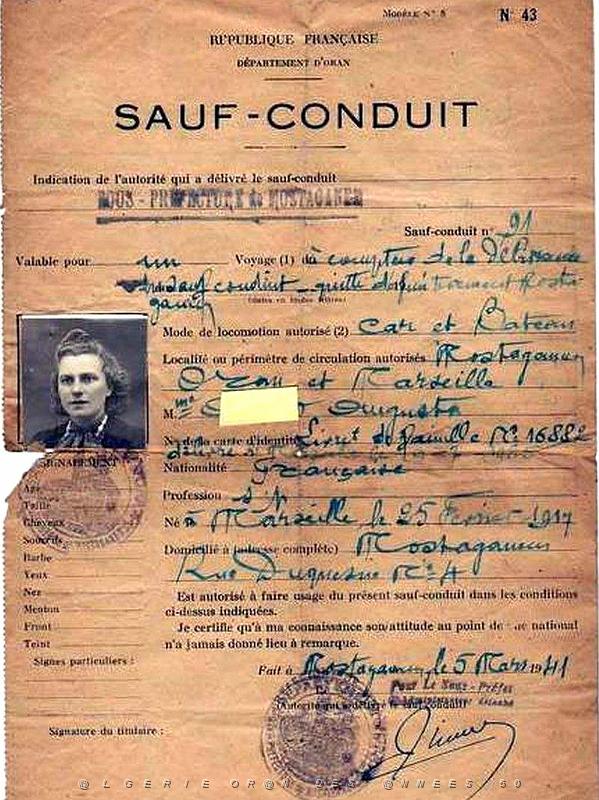 MODÈLE N° 8 N° 43
RÉPUBLIQUE FRANÇAISE
DÉPARTEMENT D'ORAN
SAUF-CONDUIT
Indication de l'autorité qui a délivré le sauf-conduit
SOUS - PREFECTURE de MOSTAGANEM
Sauf-conduit n° 91
Valable pour un Voyage (1) du à compter de la Délivrance
du sauf conduit
Mode de locomotion autorisé (2) Car et Bateau
Localité ou périmètre de circulation autorisés Mostaganem
Oran et Marseille
M. me Augusta
N° de la carte d'identité Livret de famille N° 16882
Nationalité Française
Profession s/p
Né à Marseille le 25 Fevrier 1917
Domicilié à (adresse complète) Mostaganem
Rue Duquesne N° 4
Est autorisé à faire usage du présent sauf-conduit dans les conditions
ci-dessus indiquées.
Je certifie qu'à ma connaissance son attitude au point de national
n'a jamais donné lieu à remarque.
SIGNALEMENT
Age
Taille
Cheveux
Sourcils
Barbe
Yeux
Nez
Menton
Front
Teint
Signes particuliers :
Fait à Mostaganem, le 5 Mars 1941
Pour Le Sous-Préfet
(Autorité qui a délivré le sauf-conduit)
Signature du titulaire :
@LGERIE OR@N DES @NNEES 50